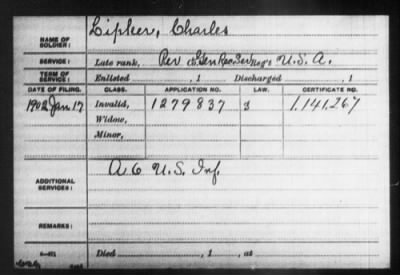 NAME OF SOLDIER: Lipker, Charles
SERVICE: Late rank, Rev & Gen Rec Serv U.S.A.
TERM OF SERVICE: Enlisted , 1 Discharged , 1
DATE OF FILING. CLASS. APPLICATION NO. LAW. CERTIFICATE NO.
1902 Jan 17 Invalid, 1279837 3 1,141,267
Widow,
Minor,
ADDITIONAL SERVICES: A 6 U.S. Inf.
REMARKS:
Died , 1 , at